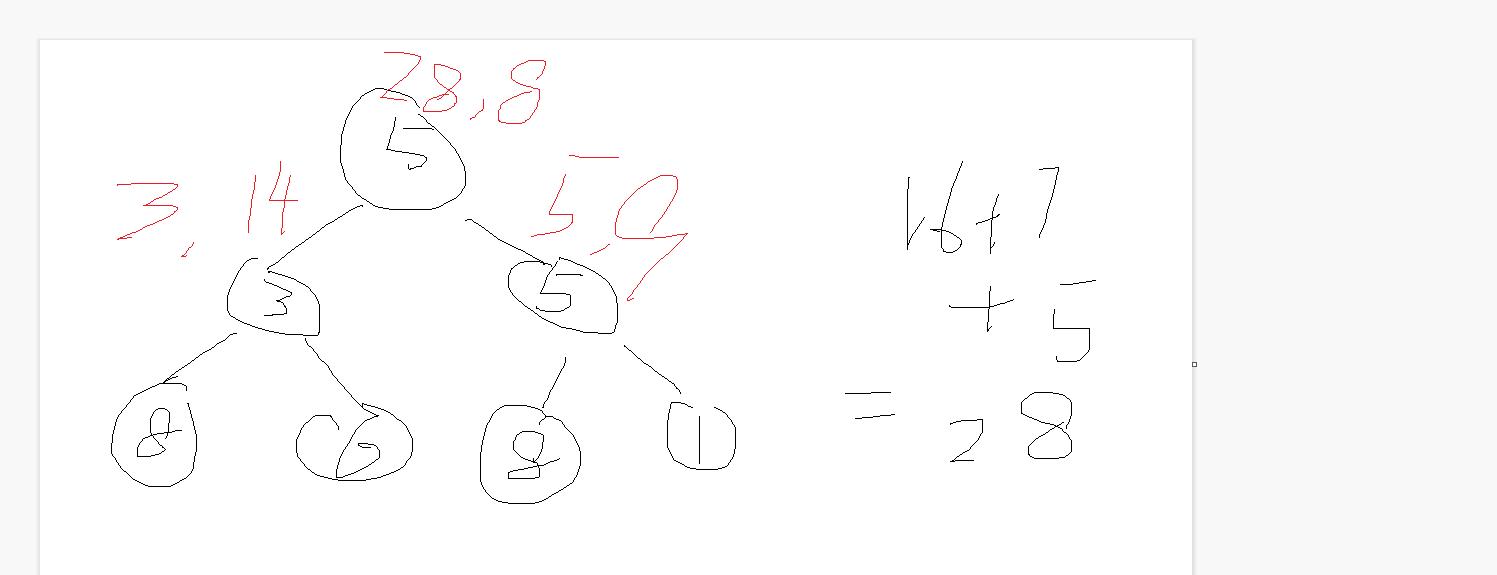 28,8
5
3, 14
5, 9
3
5
8
6
8
1
16+7
+ 5
= 28